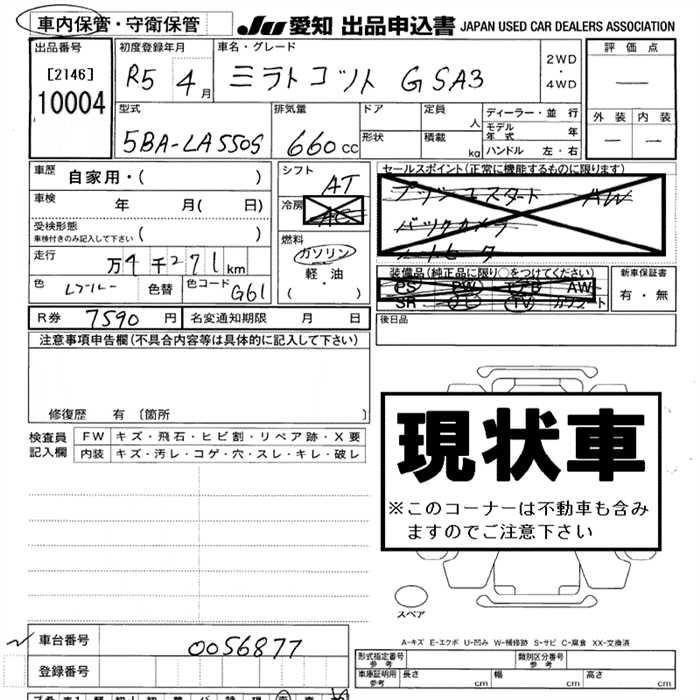 車内保管・守衛保管 JU 愛知 出品申込書 JAPAN USED CAR DEALERS ASSOCIATION
出品番号 初度登録年月 車名・グレード 評価点
[2146] R5 4月 ミラトコット G SA3 2WD・4WD ―
10004
型式 排気量 ドア 定員 人 ディーラー・並行 外装 内装
5BA-LA550S 660cc 形状 積載 kg モデル年式 年 ― ―
ハンドル 左・右
車歴 自家用・( ) シフト AT セールスポイント(正常に機能するものに限ります)
車検 年 月( 日) 冷房 AC プッシュスタート AW
受検形態 バックカメラ
車検付きのみ記入して下さい ( ) シートヒータ
走行 万4千271km 燃料 ガソリン・軽油・( ) 装備品(純正品に限り○をつけてください) 新車保証書
色 色替 色コード G61 PS PW エアB AW 有・無
SR TV カワシート
R券 7590円 名変通知期限 月 日 後日品
注意事項申告欄(不具合内容等は具体的に記入して下さい)
修復歴 有 〔箇所 〕
検査員記入欄 FW キズ・飛石・ヒビ割・リペア跡・X要
内装 キズ・汚レ・コゲ・穴・スレ・キレ・破レ
現状車
※このコーナーは不動車も含み
ますのでご注意下さい
スペア
A-キズ E-エクボ U-凹み W-補修跡 S-サビ C-腐食 XX-交換済
車台番号 0056877
登録番号
形式指定番号 参考 類別区分番号 参考
車庫証明用 参考 長さ cm 幅 cm 高さ cm